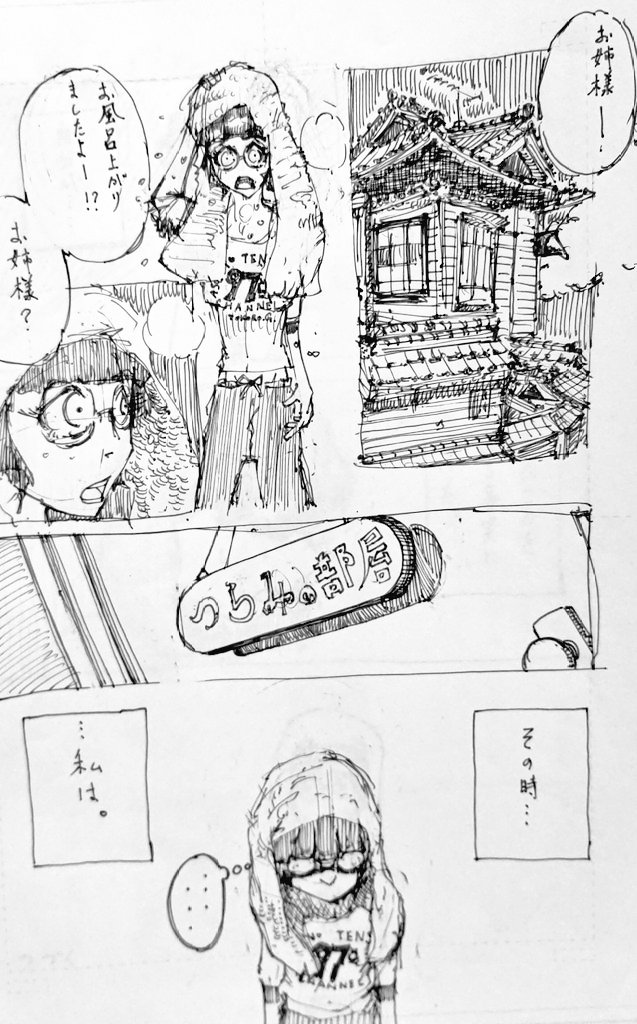 お姉様ー!
お風呂上がり
ましたよー!?
お姉様?
TEN
CHANNEL
つらみの部屋
その時…
…私は。
NO TENS
CHANNEL